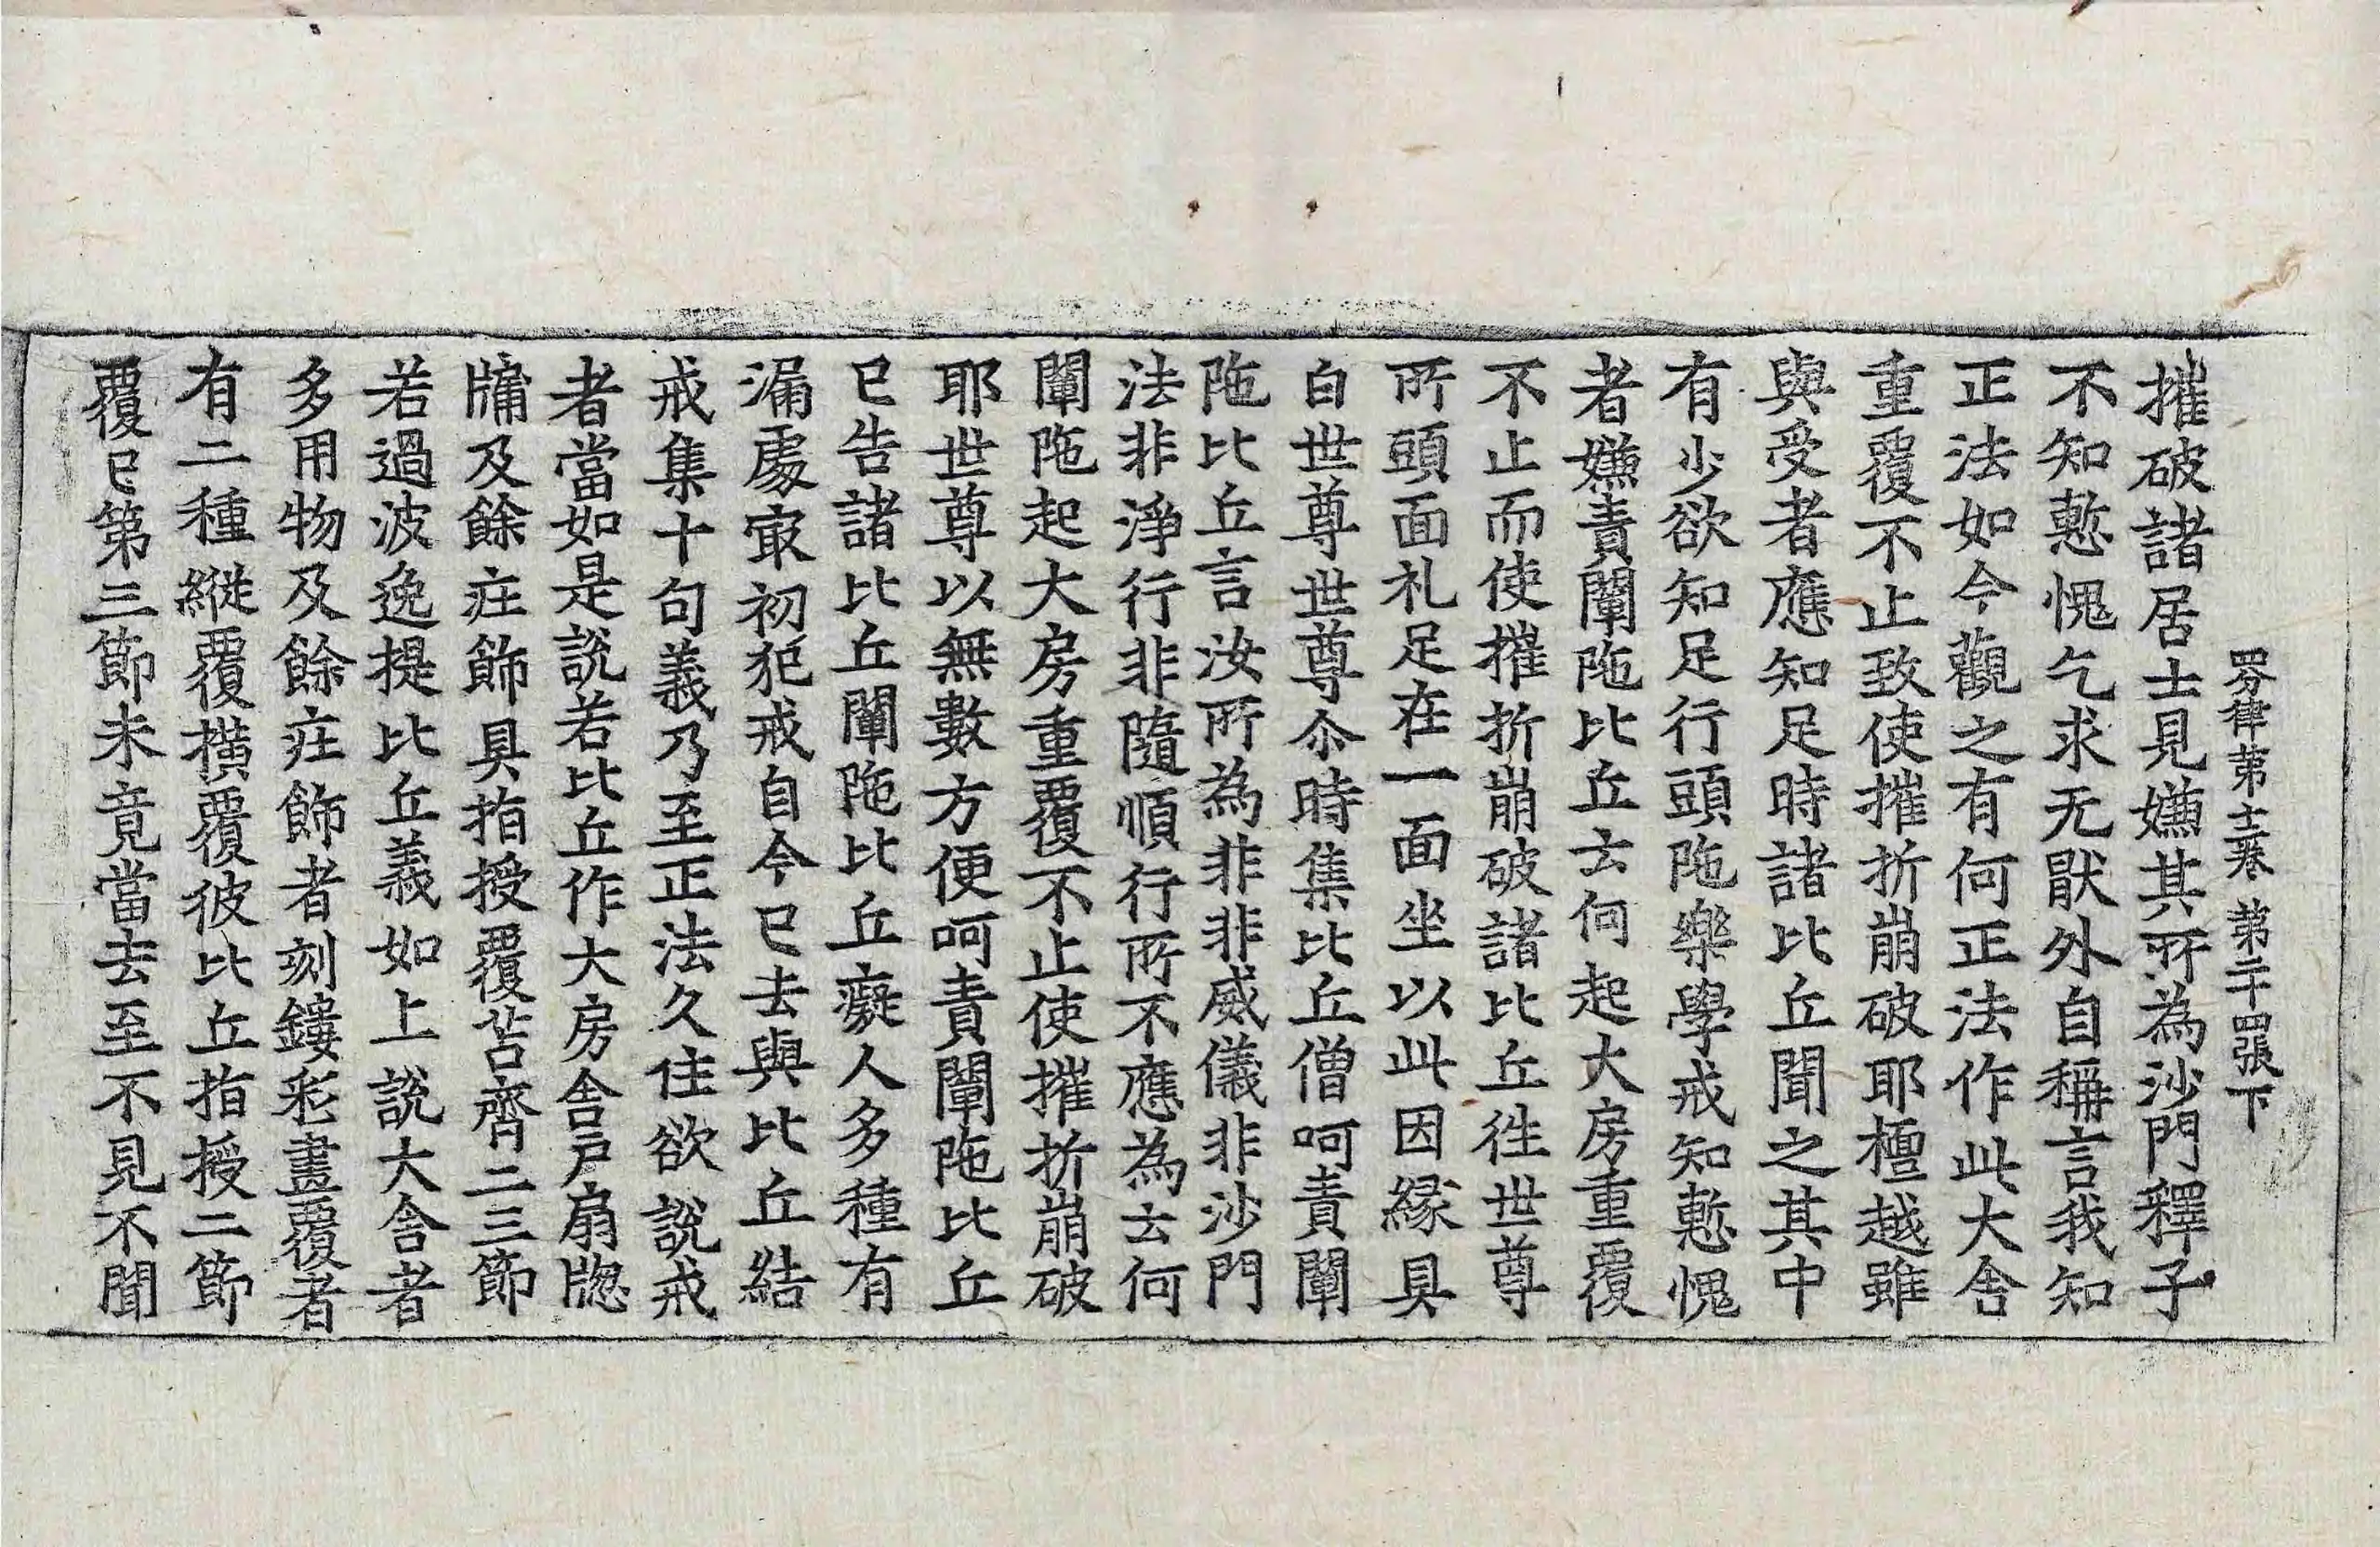 四分律第十二卷 第二十四張 下
摧破諸居士見嫌其所為沙門釋子
不知慙愧乞求无猒外自稱言我知
正法如今觀之有何正法作此大舍
重覆不止致使摧折崩破耶檀越雖
與受者應知足時諸比丘聞之其中
有少欲知足行頭陁樂學戒知慙愧
者嫌責闡陁比丘云何起大房重覆
不止而使摧折崩破諸比丘徃世尊
所頭面礼足在一面坐以此因縁具
白世尊世尊尒時集比丘僧呵責闡
陁比丘言汝所為非非威儀非沙門
法非淨行非隨順行所不應為云何
闡陁起大房重覆不止使摧折崩破
耶世尊以無數方便呵責闡陁比丘
已告諸比丘闡陁比丘癡人多種有
漏處㝡初犯戒自今已去與比丘結
戒集十句義乃至正法久住欲說戒
者當如是說若比丘作大房舍戶扇牎
牖及餘疘飾具指授覆苫齊二三節
若過波逸提比丘義如上說大舍者
多用物及餘疘飾者刻鏤彩畫覆者
有二種縱覆橫覆彼比丘指授二節
覆已第三節未竟當去至不見不聞